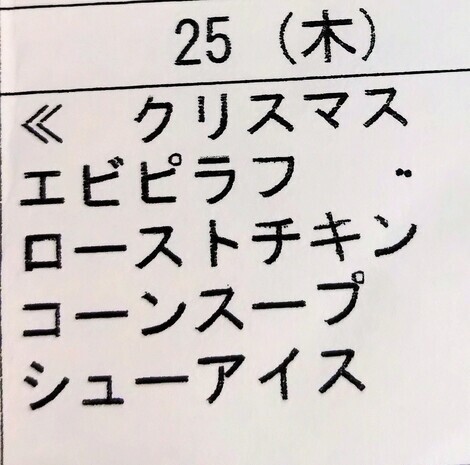 25 (木)
≪ クリスマス
エビピラフ
ローストチキン
コーンスープ
シューアイス